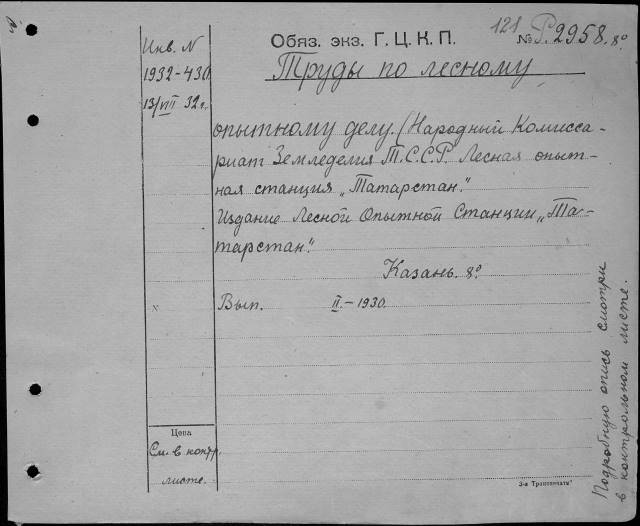 Инв. N
1932-430
13/VII 32 г.
Обяз. экз. Г. Ц. К. П.
121
№ Р.2958. 8º
Труды по лесному
опытному делу. (Народный Комисса-
риат Земледелия Т.С.С.Р. Лесная опыт-
ная станция „Татарстан."
Издание Лесной Опытной Станции „Та-
тарстан."
Казань. 8º
x
Вып. II-1930.
Цена
См. в контр.
листе.
3-я Транспечать
Подробную опись смотри
в контрольном листе.